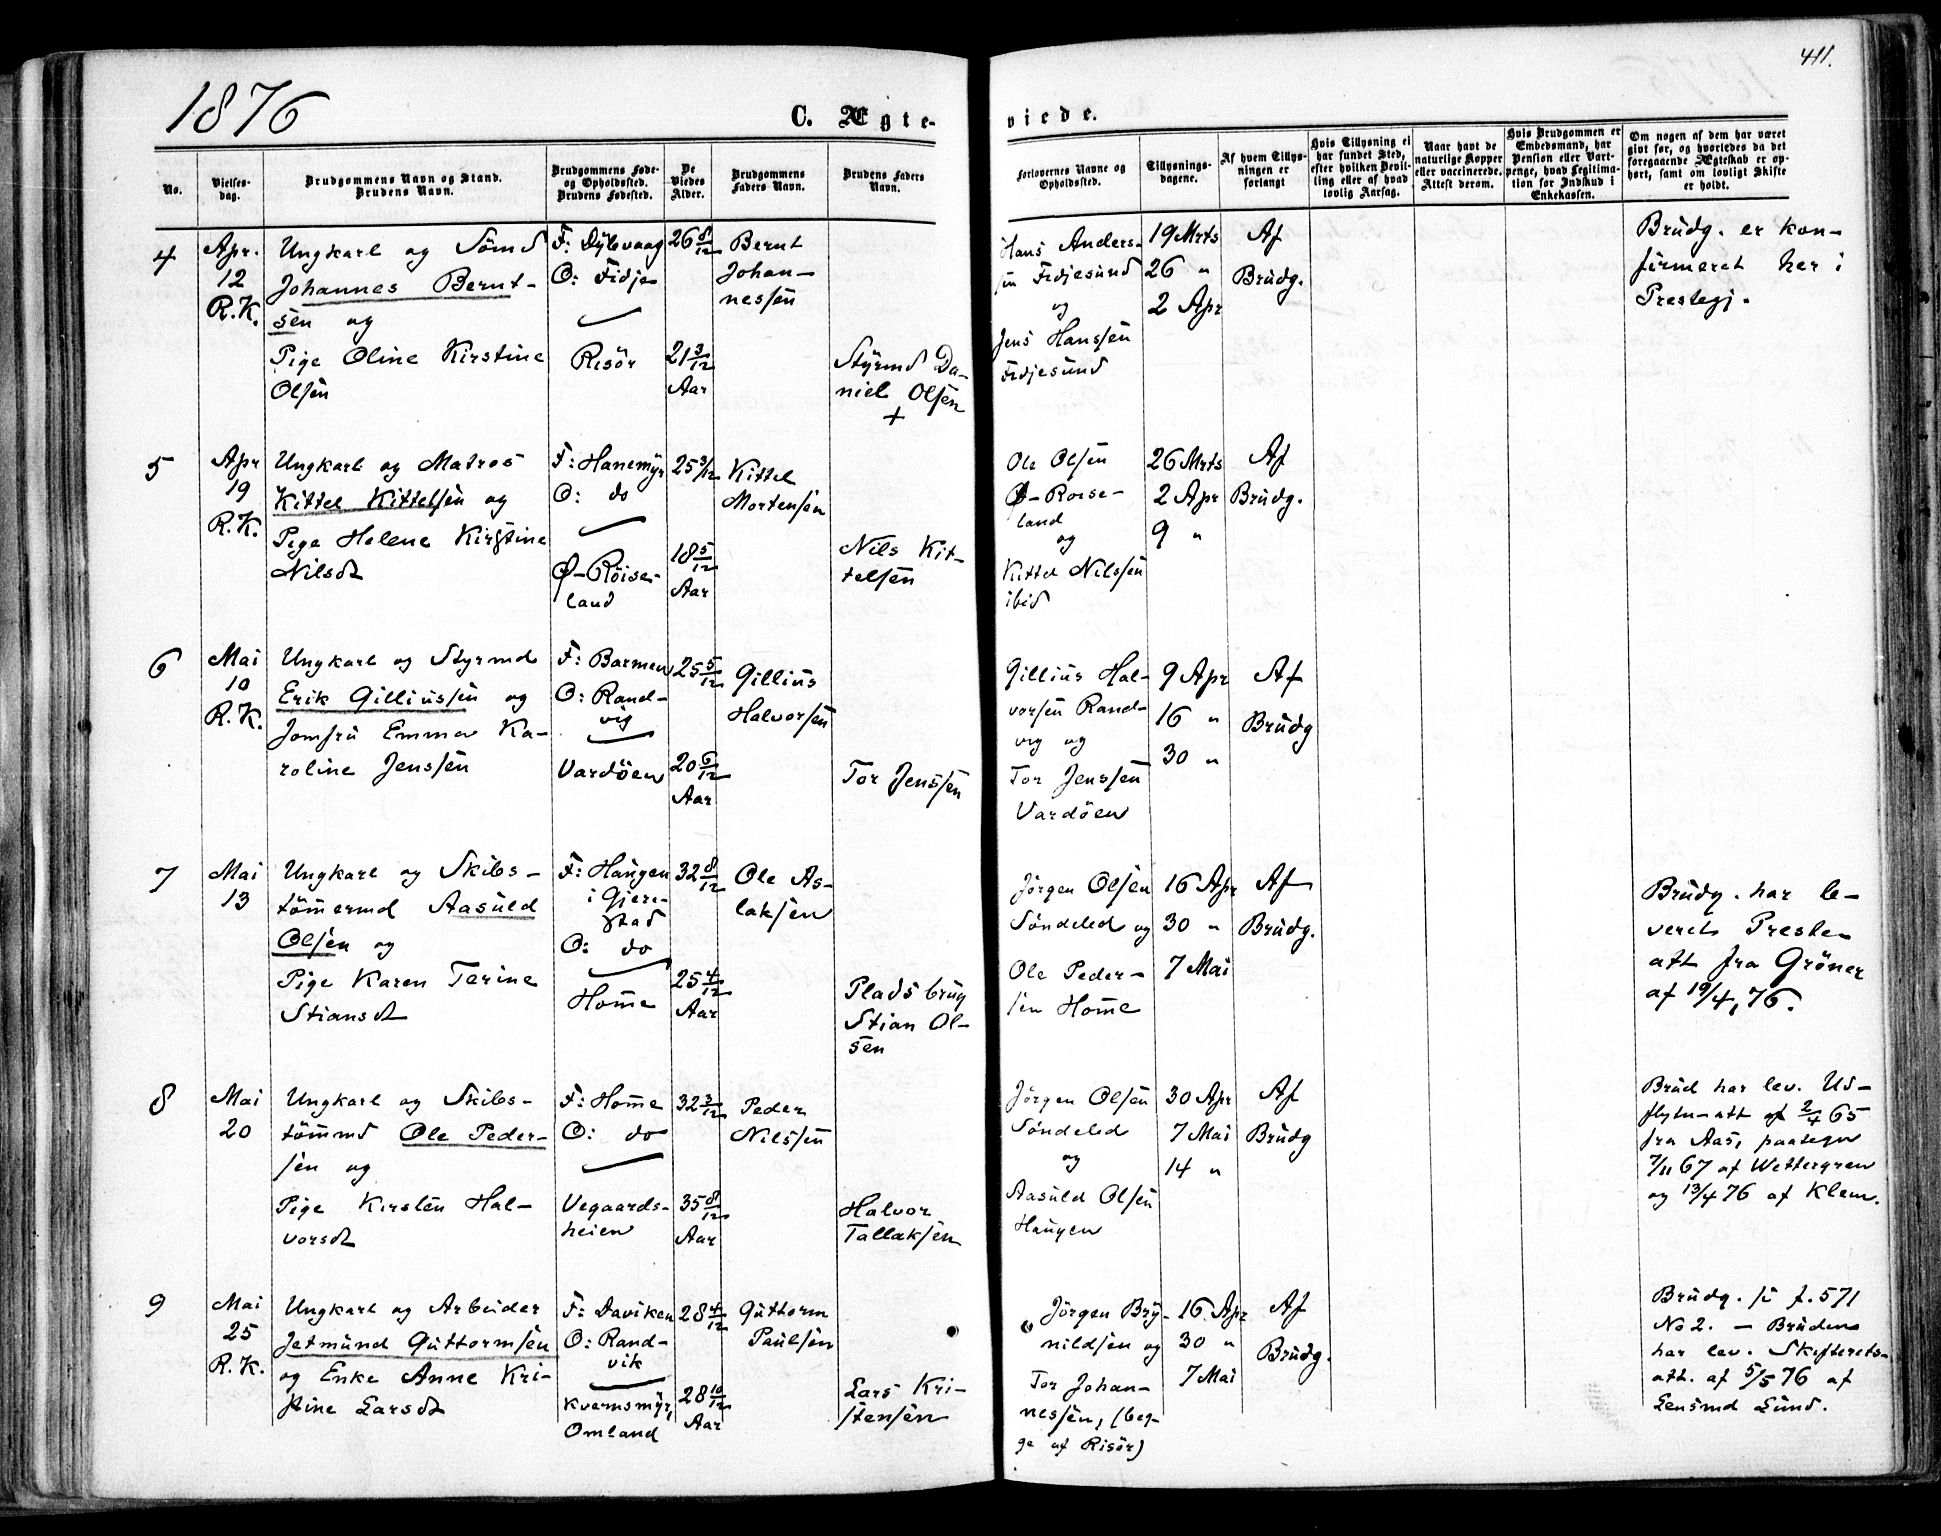 411.
1876
C. Ægte-
viede.
No.
Vielses-
dag.
Brudgommens Navn og Stand.
Brudens Navn.
Brudgommens Føde-
og Opholdssted.
Brudens Fødested.
De
Viedes
Alder.
Brudgommens
Faders Navn.
Brudens Faders
Navn.
Forlovernes Navne og
Opholdssted.
Tillysnings-
dagene.
Af hvem Tillys-
ningen er
forlangt
Hvis Tillysning ei
har fundet Sted,
efter hvilken Bevil-
ling eller af hvad
lovlig Aarsag.
Naar havt de
naturlige Kopper
eller vaccinerede.
Attest derom.
Hvis Brudgommen er
Embedsmand, har
Pension eller Vart-
penge, hvad Legitima-
tion for Indskud i
Enkekassen.
Om nogen af dem har været
givt før, og hvorledes da det
foregaaende Ægteskab er op-
hørt, samt om lovligt Skifte
er holdt.
4
Apr.
12
R.K.
Ungkarl og Sømd
Johannes Bernt-
sen og
Pige Oline Kirstine
Olsen
F: Dybvaag
O: Fidje
Risør
26 8/12
21 3/12
Aar
Bernt
Johan-
nessen
Styrmd Da-
niel Olsen
+
Hans Anders-
sen Fidjesund
og
Jens Hanssen
Fidjesund
19 Mrts
26 "
2 Apr
Af
Brudg.
Brudg. er kon-
firmeret her i
Prestegj.
5
Apr
19
R.K.
Ungkarl og Matros
Kittel Kittelsen og
Pige Helene Kirstine
Nilsdt
F: Hanemyr
O: do
Ø-Röise-
land
25 3/12
18 5/12
Aar
Kittel
Mortensen
Nils Kit-
telsen
Ole Olsen
Ø-Roise-
land
og
Kittel Nilssen
ibid
26 Mrts
2 Apr
9 "
Af
Brudg.
6
Mai
10
R.K.
Ungkarl og Styrmd
Erik Gilliussen og
Jomfru Emma Ka-
roline Jenssen
F: Barmen
O: Rand-
vig
Vardöen
25 5/12
20 6/12
Aar
Gillius
Halvorsen
Tor Jenssen
Gillius Hal-
vorsen Rand-
vig og
Tor Jenssen
Vardöen
9 Apr
16 "
30 "
Af
Brudg
7
Mai
13
Ungkarl og Skibs-
tömermd Aasuld
Olsen og
Pige Karen Terine
Stiansdt
F: Haugen
i Gjere-
stad
O: do
Home
32 8/12
25 4/12
Aar
Ole As-
laksen
Pladsbrug
Stian Ol-
sen
Jörgen Olsen
Söndeled og
Ole Peder-
sen Home
16 Apr
30 "
7 Mai
Af
Brudg.
Brudg. har le-
veret Preste-
att fra Gröner
af 19/4, 76.
8
Mai
20
Ungkarl og Skibs-
tömmd Ole Peder-
sen og
Pige Kirsten Hal-
vorsdt
F: Home
O: do
Vegaards-
heien
32 3/12
35 8/12
Aar
Peder
Nilssen
Halvor
Tallaksen
Jörgen Olsen
Söndeled
og
Aasuld Olsen
Haugen
30 Apr
7 Mai
14 "
Af
Brudg
Brud har lev. Ud-
flytn-att af 2/4 65
fra Aas, paategn
7/11 67 af Wettergren
og 13/4 76 af Klem.
9
Mai
25
R.K.
Ungkarl og Arbeider
Jetmund Guttormsen
og Enke Anne Kri-
stine Larsdt
F: Daviken
O: Rand-
vik
Kvernsmyr,
Omland
28 4/12
28 10/12
Aar
Guttorm
Paulsen
Lars Kri-
stensen
Jörgen Bry-
nildsen og
Tor Johan-
nessen, (beg-
ge af Risör)
16 Apr
30 "
7 Mai
Af
Brudg.
Brudg. se f. 571
No 2. - Bruden
har lev. Skifterets-
att. af 5/5 76 af
Lensmd Lund.